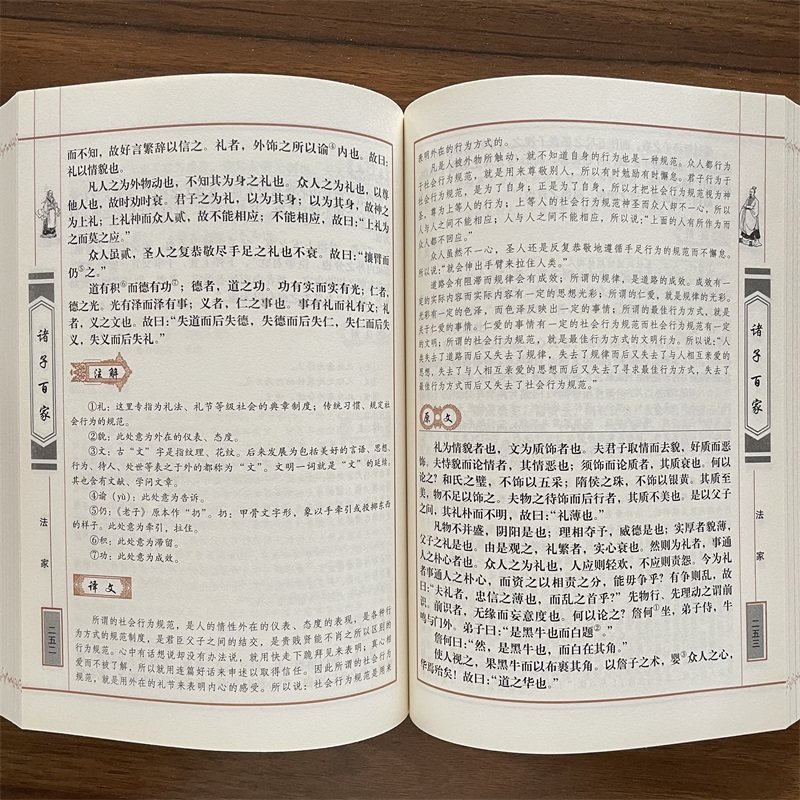 而不知，故好言繁辞以信之。礼者，外饰之所以谕④内也。故曰：
礼以情貌也。
凡人之为外物动也，不知其为身之礼也。众人之为礼也，以尊
他人也，故时劝时衰。君子之为礼，以为其身；以为其身，故神之
为上礼；上礼神而众人贰，故不能相应；不能相应，故曰：“上礼为
之而莫之应。”
众人虽贰，圣人之复恭敬尽手足之礼也不衰。故曰：“攘臂而
仍⑤之。”
道有积⑥而德有功⑦；德者，道之功。功有实而实有光；仁者，
德之光。光有泽而泽有事；义者，仁之事也。事有礼而礼有文；礼
者，义之文也。故曰：“失道而后失德，失德而后失仁，失仁而后失
义，失义而后失礼。”
注解
①礼：这里专指为礼法、礼节等级社会的典章制度；传统习惯、规定社
会行为的规范。
②貌：此处意为外在的仪表、态度。
③文：古“文”字是指纹理、花纹。后来发展为包括美好的言语、思想、
行为、待人、处世等表之于外的都称为“文”。文明一词就是“文”的延续，
其也含有文献、学问文章。
④谕（yù）：此处意为告诉。
⑤仍：《老子》原本作“扔”。扔：甲骨文字形，象以手牵引或投掷东西
的样子。此处意为牵引，拉住。
⑥积：此处意为滞留。
⑦功：此处意为成效。
译文
所谓的社会行为规范，是人的情性外在的仪表、态度的表现，是各种行
为方式的规范制度，是君臣父子之间的结交，是贵贱贤能不肖之所以区别的
行为规范。心中有话想说却没有办法说，就用快走下跪拜见来表明；真心相
爱而不被了解，所以就用连篇好话来申述以取得信任。因此所谓的社会行为
规范，就是用外在的礼节来表明内心的感受。所以说：社会行为规范是用来
诸子百家
法家
二五二
表明外在的行为方式的。
凡是人被外物所触动，就不知道自身的行为也是一种规范。众人都行为
于社会行为规范，就是用来尊敬别人，所以有时勉励有时懈怠。君子行为于
社会行为规范，是为了自身；正是为了自身，所以才把社会行为规范视为神
圣，尊为上等人的行为；上等人的社会行为规范神圣而众人却不一心，所以
人与人之间不能相应；人与人之间不能相应，所以说：“上面的人有所作为而
众人都不回应。”
众人虽然不一心，圣人还是反复恭敬地遵循手足行为的规范而不懈怠。
所以说：“就会伸出手臂来拉住人类。”
道路会有阻滞而规律会有成效；所谓的规律，是道路的成效。成效有一
定的实际内容而实际内容有一定的思想光彩；所谓的仁爱，就是规律的光彩。
光彩有一定的色泽，而色泽反映出一定的事情；所谓的最佳行为方式，就是
关于仁爱的事情。仁爱的事情有一定的社会行为规范而社会行为规范有一定
的文明；所谓的社会行为规范，就是最佳行为方式的文明行为。所以说：“人
类失去了道路而后又失去了规律，失去了规律而后又失去了人与相互亲爱的
思想，失去了与人相互亲爱的思想而后又失去了寻求最佳行为方式，失去了
最佳行为方式而后又失去了社会行为规范。”
原文
礼为情貌者也，文为质饰者也。夫君子取情而去貌，好质而恶
饰。夫恃貌而论情者，其情恶也；须饰而论质者，其质衰也。何以
论之？和氏之璧，不饰以五采；隋侯之珠，不饰以银黄。其质至
美，物不足以饰之。夫物之待饰而后行者，其质不美也。是以父子
之间，其礼朴而不明，故曰：“礼薄也。”
凡物不并盛，阴阳是也；理相夺予，威德是也；实厚者貌薄，
父子之礼是也。由是观之，礼繁者，实心衰也。然则为礼者，事通
人之朴心者也。众人之为礼也，人应则轻欢，不应则责怨。今为礼
者事通人之朴心，而资之以相责之分，能毋争乎？有争则乱，故
曰：“夫礼者，忠信之薄也，而乱之首乎？”先物行、先理动之谓前
识。前识者，无缘而妄意度也。何以论之？詹何①坐，弟子侍，牛
鸣与门外。弟子曰：“是黑牛也而白题②。”
詹何曰：“然，是黑牛也，而白在其角。”
使人视之，果黑牛而以布裹其角。以詹子之术，婴③众人之心，
华焉殆矣！故曰：“道之华也。”
诸子百家
法家
二五三